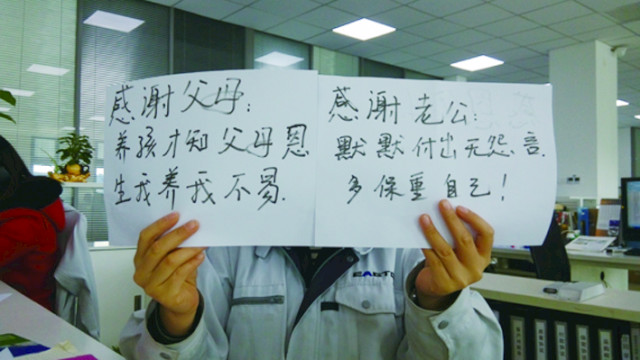 感谢父母：
养孩才知父母恩
生我养我不易.
感谢老公：
默默付出无怨言.
多保重自己！